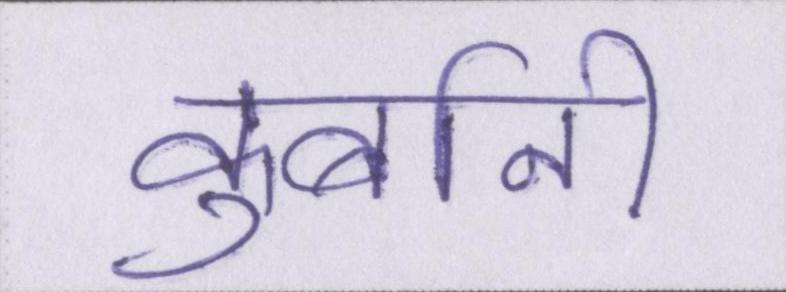 कुर्बानी